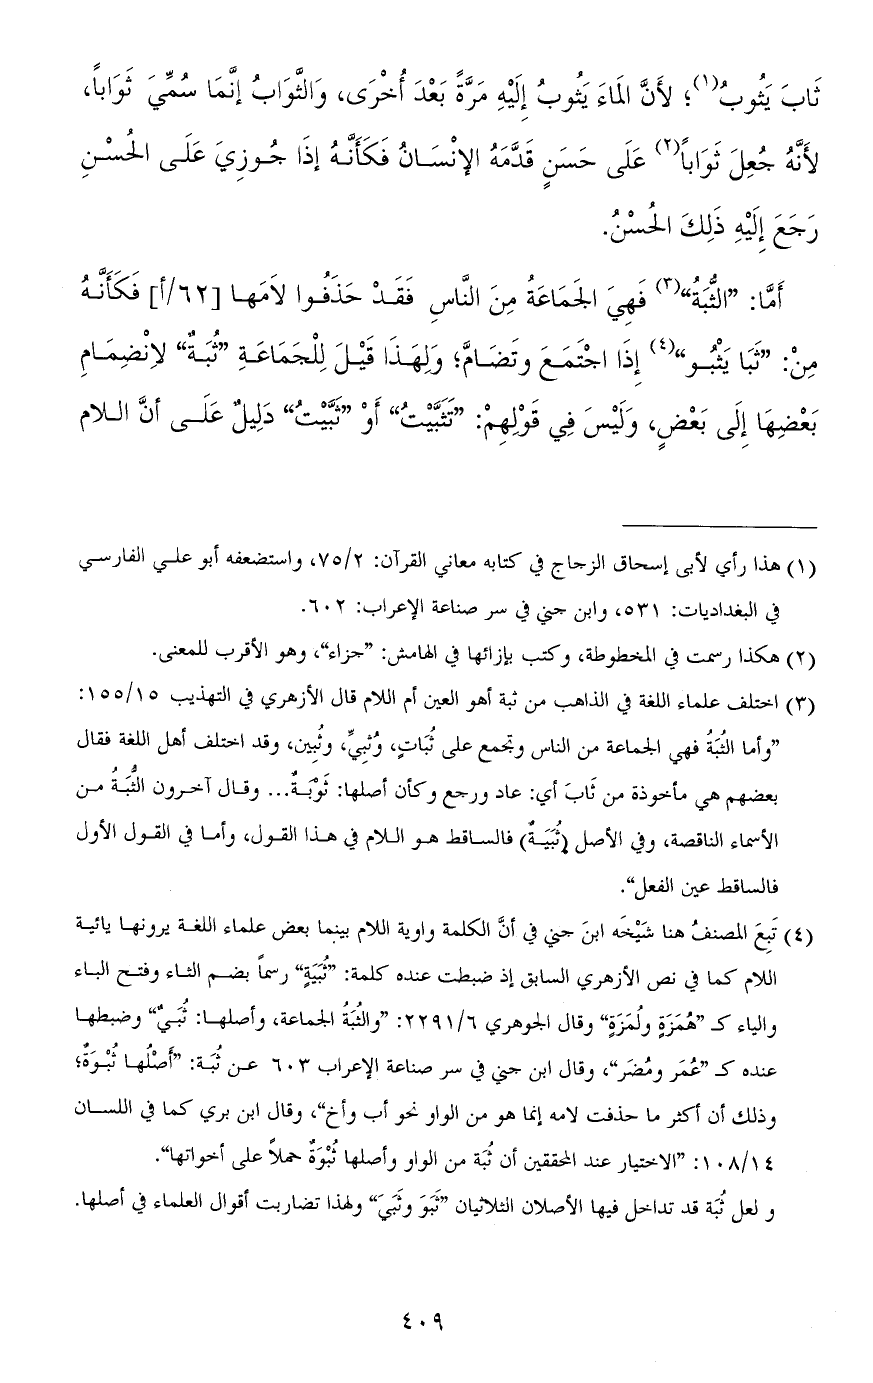 ثَابَ يَثُوبُ(١)؛ لأَنَّ الْمَاءَ يَثُوبُ إِلَيْهِ مَرَّةً بَعْدَ أُخْرَى، وَالثَّوَابُ إِنَّمَا سُمِّيَ ثَوَاباً،
لأَنَّهُ جُعِلَ ثَوَاباً(٢) عَلَى حَسَنٍ قَدَّمَهُ الإِنْسَانُ فَكَأَنَّهُ إِذَا جُوزِيَ عَلَى الحُسْنِ
رَجَعَ إِلَيْهِ ذَلِكَ الحُسْنُ.
أَمَّا: ”الثُّبَةُ“(٣) فَهِيَ الجَمَاعَةُ مِنَ النَّاسِ فَقَدْ حَذَفُوا لاَمَهَا [٦٢/أ] فَكَأَنَّهُ
مِنْ: ”ثَبَا يَثْبُو“(٤) إِذَا اجْتَمَعَ وتَضَامَّ؛ وَلِهَذَا قَيْلَ لِلْجَمَاعَةِ ”ثُبَةٌ“ لاِنْضِمَامِ
بَعْضِهَا إِلَى بَعْضٍ، وَلَيْسَ فِي قَوْلِهِمْ: ”تَثَبَّيْتُ“ أَوْ ”ثَبَّيْتُ“ دَلِيلٌ عَلَى أنَّ اللام
(١) هذا رأي لأبى إسحاق الزجاج في كتابه معاني القرآن: ٧٥/٢، واستضعفه أبو علي الفارسي
في البغداديات: ٥٣١، وابن جني في سر صناعة الإعراب: ٦٠٢.
(٢) هكذا رسمت في المخطوطة، وكتب بإزائها في الهامش: ”جزاء“، وهو الأقرب للمعنى.
(٣) اختلف علماء اللغة في الذاهب من ثبة أهو العين أم اللام قال الأزهري في التهذيب ١٥٥/١٥:
”وأما الثُبَةُ فهي الجماعة من الناس وتجمع على ثُبَاتٍ، وُثِبيٍّ، وثُبِين، وقد اختلف أهل اللغة فقال
بعضهم هي مأخوذة من ثَابَ أي: عاد ورجع وكأن أصلها: ثَوْبَةٌ... وقال آخرون الثُّبَةُ من
الأسماء الناقصة، وفي الأصل (ثُبَيَةٌ) فالساقط هو اللام في هذا القول، وأما في القول الأول
فالساقط عين الفعل“.
(٤) تَبِعَ المصنفُ هنا شَيْخَه ابنَ جني في أنَّ الكلمة واوية اللام بينما بعض علماء اللغة يرونها يائية
اللام كما في نص الأزهري السابق إذ ضبطت عنده كلمة: ”ثُبَيَةٍ“ رسماً بضم الثاء وفتح الباء
والياء كـ ”هُمَزَةٍ ولُمَزَةٍ“ وقال الجوهري ٢٢٩١/٦: ”والثُبَةُ الجماعة، وأصلها: ثُبَيٌ“ وضبطها
عنده كـ ”عُمَر ومُضَر“، وقال ابن جني في سر صناعة الإعراب ٦٠٣ عن ثُبَة: ”أَصْلُها ثُبْوَةٌ؛
وذلك أن أكثر ما حذفت لامه إنما هو من الواو نحو أب وأخ“، وقال ابن بري كما في اللسان
١٠٨/١٤: ”الاختيار عند المحققين أن ثُبَة من الواو وأصلها ثُبْوَةٌ حملاً على أخواتها“.
و لعل ثُبَة قد تداخل فيها الأصلان الثلاثيان ”ثَبَوَ وثَبَيَ“ ولهذا تضاربت أقوال العلماء في أصلها.
٤٠٩